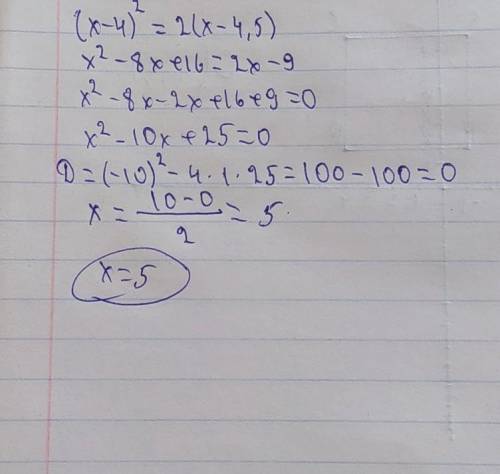 (x-4)² = 2(x-4,5)
x² - 8x + 16 = 2x - 9
x² - 8x - 2x + 16 + 9 = 0
x² - 10x + 25 = 0
D = (-10)² - 4 · 1 · 25 = 100 - 100 = 0
x = (10-0)/2 = 5
x = 5